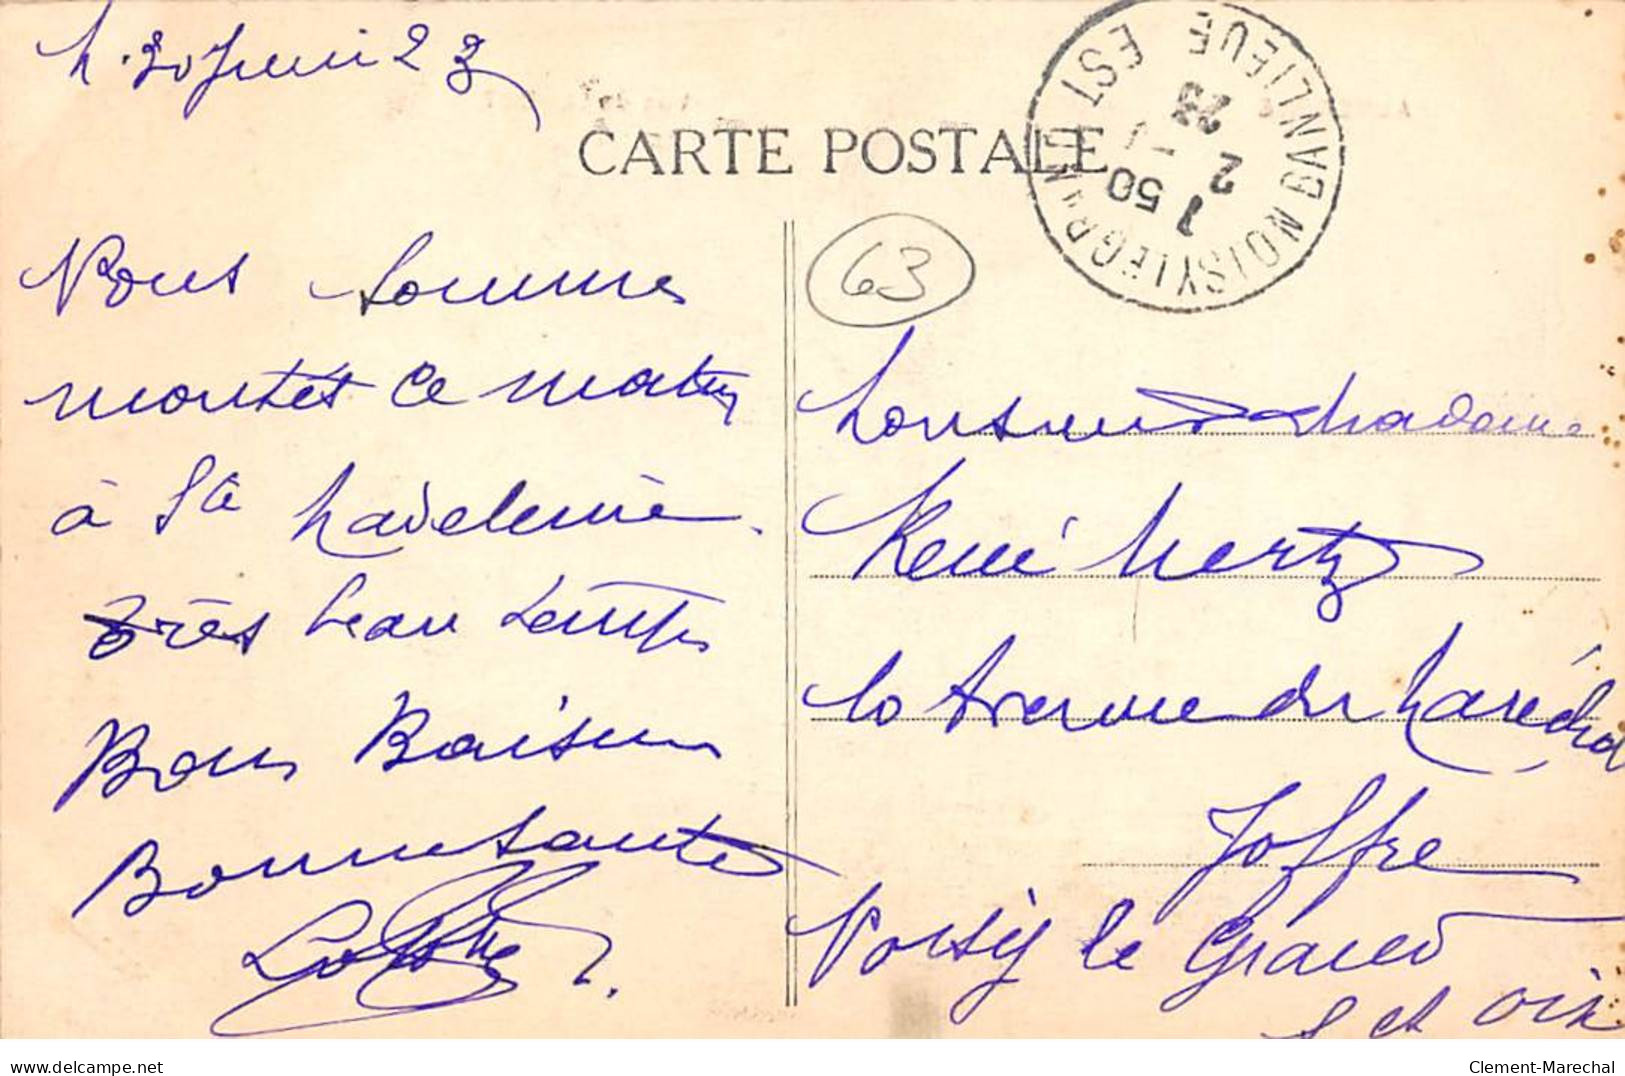 30 Juin 23
CARTE POSTALE
NOISY LE GRAND BANLIEUE EST
1 50
2 - 7
23
63
Nous sommes
montés ce matin
à Ste Madeleine.
très beau temps
Bons Baisers
Bonne santé
Monsieur & Madame
René Hertz
10 Avenue du Maréchal
Joffre
Noisy le Grand
S et Oise
Clement-Marechal